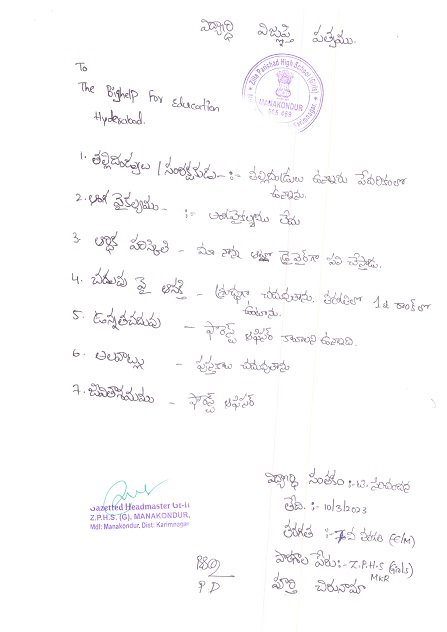 విద్యార్థి విజ్ఞప్తి పత్రము.
To
The Bighelp For Education
Hyderabad.
Zilla Parishad High School (Girls)
MANAKONDUR
Karimnagar
1. తల్లిదండ్రులు / సంరక్షకుడు - :- తల్లిదండ్రులు ఉన్నారు పేదరికంలో
ఉన్నాను.
2. అంగ వైకల్యము - :- అంగవైకల్యము లేదు
3. ఆర్థిక పరిస్థితి - మా నాన్న ఆటో డ్రైవర్‌గా పని చేస్తాడు.
4. చదువు పై ఆసక్తి - శ్రద్ధగా చదువుతాను. తరగతిలో 1st ర్యాంక్ లో
ఉంటాను.
5. ఉన్నతచదువు - ఫారెస్ట్ ఆఫీసర్ కావాలని ఉన్నది.
6. అలవాట్లు - పుస్తకాలు చదువుతాను
7. జీవితాశయము - ఫారెస్ట్ ఆఫీసర్
Gazetted Headmaster Gr-II
Z.P.H.S. (G), MANAKONDUR,
Mdl: Manakondur, Dist: Karimnagar
విద్యార్థి సంతకం :-
తేది. :- 10/3/2023
తరగతి :- 7వ తరగతి (E/M)
పాఠశాల పేరు :- Z.P.H.S (girls)
MKR
పూర్తి చిరునామా
P D